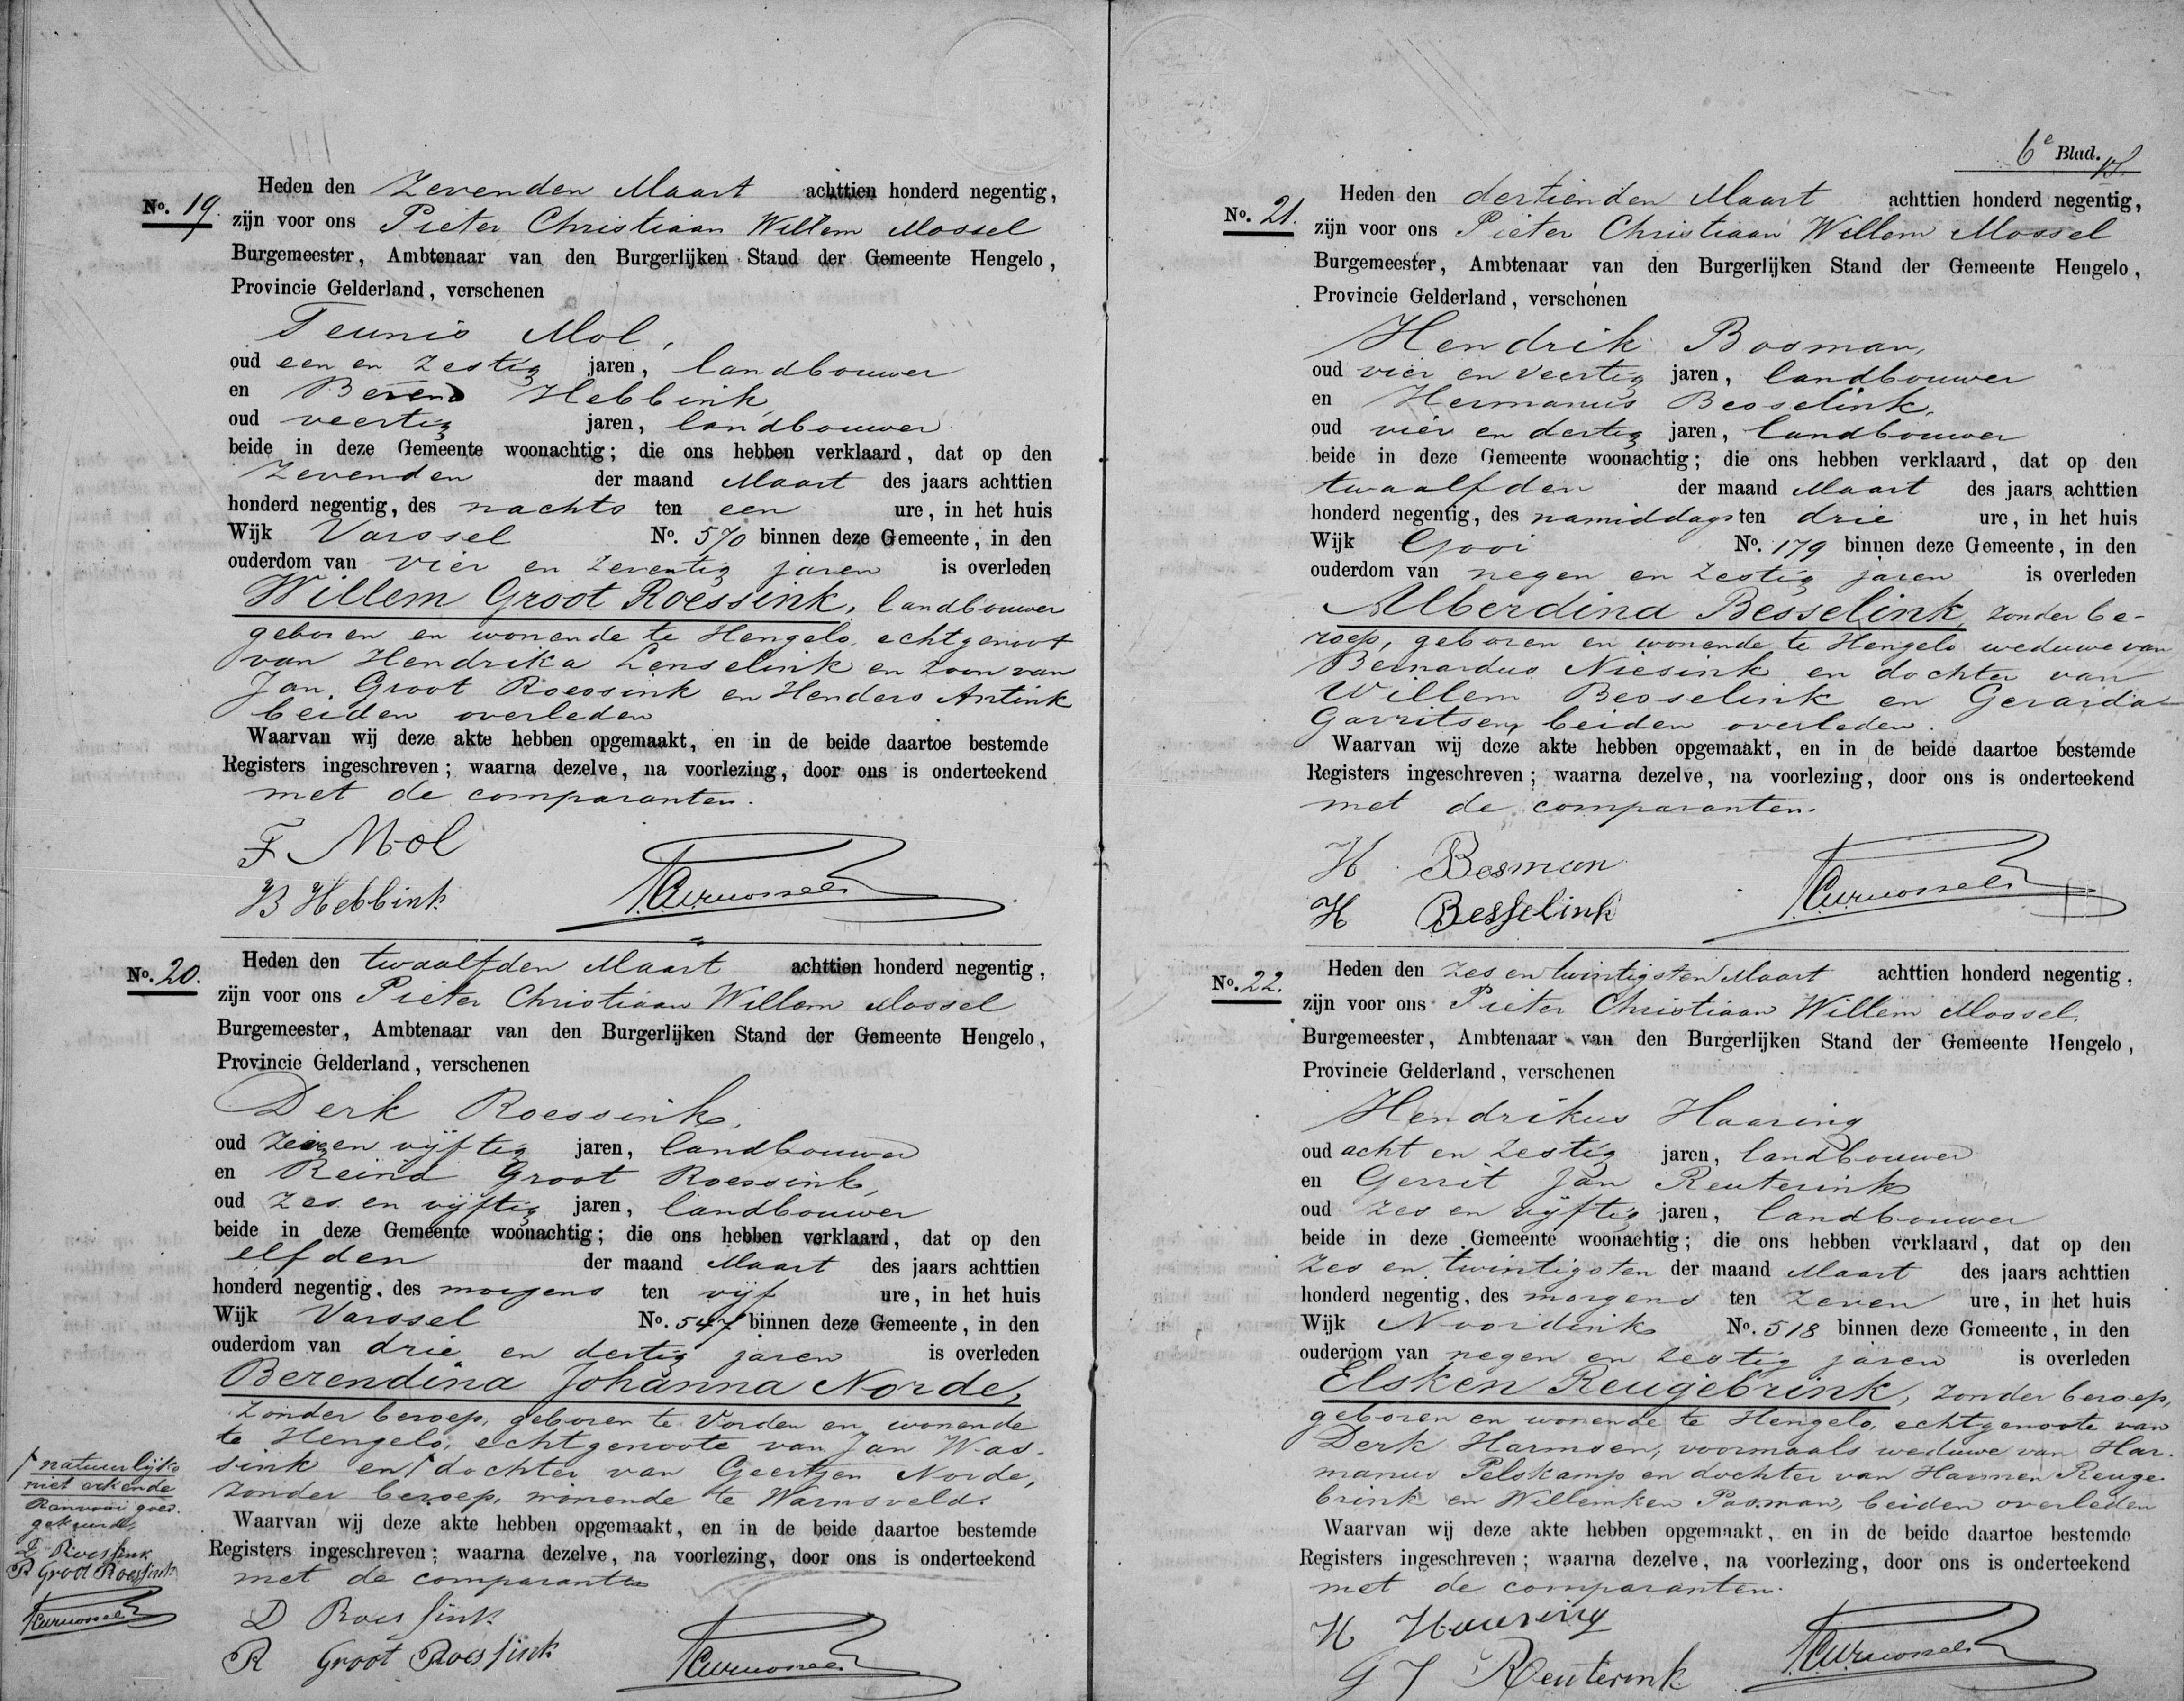 No. 19.
Heden den Zevenden Maart achttien honderd negentig,
zijn voor ons Pieter Christiaan Willem Mossel
Burgemeester, Ambtenaar van den Burgerlijken Stand der Gemeente Hengelo,
Provincie Gelderland, verschenen
Teunis Mol,
oud een en zestig jaren, landbouwer
en Berend Hebbink
oud veertig jaren, landbouwer
beide in deze Gemeente woonachtig; die ons hebben verklaard, dat op den
Zevenden der maand Maart des jaars achttien
honderd negentig, des nachts ten een ure, in het huis
Wijk Varssel No. 570 binnen deze Gemeente, in den
ouderdom van vier en zeventig jaren is overleden
Willem Groot Roessink, landbouwer
geboren en wonende te Hengelo, echtgenoot
van Hendrika Lenselink en zoon van
Jan Groot Roessink en Henders Antink
beiden overleden
Waarvan wij deze akte hebben opgemaakt, en in de beide daartoe bestemde
Registers ingeschreven; waarna dezelve, na voorlezing, door ons is onderteekend
met de comparanten.
T Mol
B Hebbink
No. 20.
Heden den twaalfden Maart achttien honderd negentig,
zijn voor ons Pieter Christiaan Willem Mossel
Burgemeester, Ambtenaar van den Burgerlijken Stand der Gemeente Hengelo,
Provincie Gelderland, verschenen
Derk Roessink,
oud vijftig jaren, landbouwer
en Reind Groot Roessink,
oud zes en vijftig jaren, landbouwer
beide in deze Gemeente woonachtig; die ons hebben verklaard, dat op den
elfden der maand Maart des jaars achttien
honderd negentig, des morgens ten vijf ure, in het huis
Wijk Varssel No. 547 binnen deze Gemeente, in den
ouderdom van drie en dertig jaren is overleden
Berendina Johanna Norde,
zonder beroep, geboren te Vorden en wonende
te Hengelo, echtgenoote van Jan Was-
sink en dochter van Geertjen Norde,
zonder beroep, wonende te Warnsveld.
Waarvan wij deze akte hebben opgemaakt, en in de beide daartoe bestemde
Registers ingeschreven; waarna dezelve, na voorlezing, door ons is onderteekend
met de comparanten
D Roessink
R Groot Roessink
natuurlijke
niet erkende
Renvooi goed-
gekeurd,
D Roessink
R Groot Roessink
6e Blad.
No. 21.
Heden den dertienden Maart achttien honderd negentig,
zijn voor ons Pieter Christiaan Willem Mossel
Burgemeester, Ambtenaar van den Burgerlijken Stand der Gemeente Hengelo,
Provincie Gelderland, verschenen
Hendrik Bosman,
oud vier en veertig jaren, landbouwer
en Hermanus Besselink,
oud vier en dertig jaren, landbouwer
beide in deze Gemeente woonachtig; die ons hebben verklaard, dat op den
twaalfden der maand Maart des jaars achttien
honderd negentig, des namiddags ten drie ure, in het huis
Wijk Gooi No. 179 binnen deze Gemeente, in den
ouderdom van negen en zestig jaren is overleden
Alberdina Besselink, zonder be-
roep, geboren en wonende te Hengelo weduwe van
Bernardus Niesink en dochter van
Willem Besselink en Gerarda
Garritsen, beiden overleden.
Waarvan wij deze akte hebben opgemaakt, en in de beide daartoe bestemde
Registers ingeschreven; waarna dezelve, na voorlezing, door ons is onderteekend
met de comparanten.
H Bosman
H Besselink
No. 22.
Heden den zes en twintigsten Maart achttien honderd negentig,
zijn voor ons Pieter Christiaan Willem Mossel
Burgemeester, Ambtenaar van den Burgerlijken Stand der Gemeente Hengelo,
Provincie Gelderland, verschenen
Hendrikus Haaring
oud acht en zestig jaren, landbouwer
en Gerrit Jan Reuterink
oud zes en vijftig jaren, landbouwer
beide in deze Gemeente woonachtig; die ons hebben verklaard, dat op den
Zes en twintigsten der maand Maart des jaars achttien
honderd negentig, des morgens ten zeven ure, in het huis
Wijk Noordink No. 518 binnen deze Gemeente, in den
ouderdom van negen en zestig jaren is overleden
Elsken Reugebrink, zonder beroep,
geboren en wonende te Hengelo, echtgenoote van
Derk Harmsen, voormaals weduwe van Har-
manus Pelskamp en dochter van Harmen Reuge-
brink en Willemken Pasman, beiden overleden
Waarvan wij deze akte hebben opgemaakt, en in de beide daartoe bestemde
Registers ingeschreven; waarna dezelve, na voorlezing, door ons is onderteekend
met de comparanten.
H Haaring
G J Reuterink